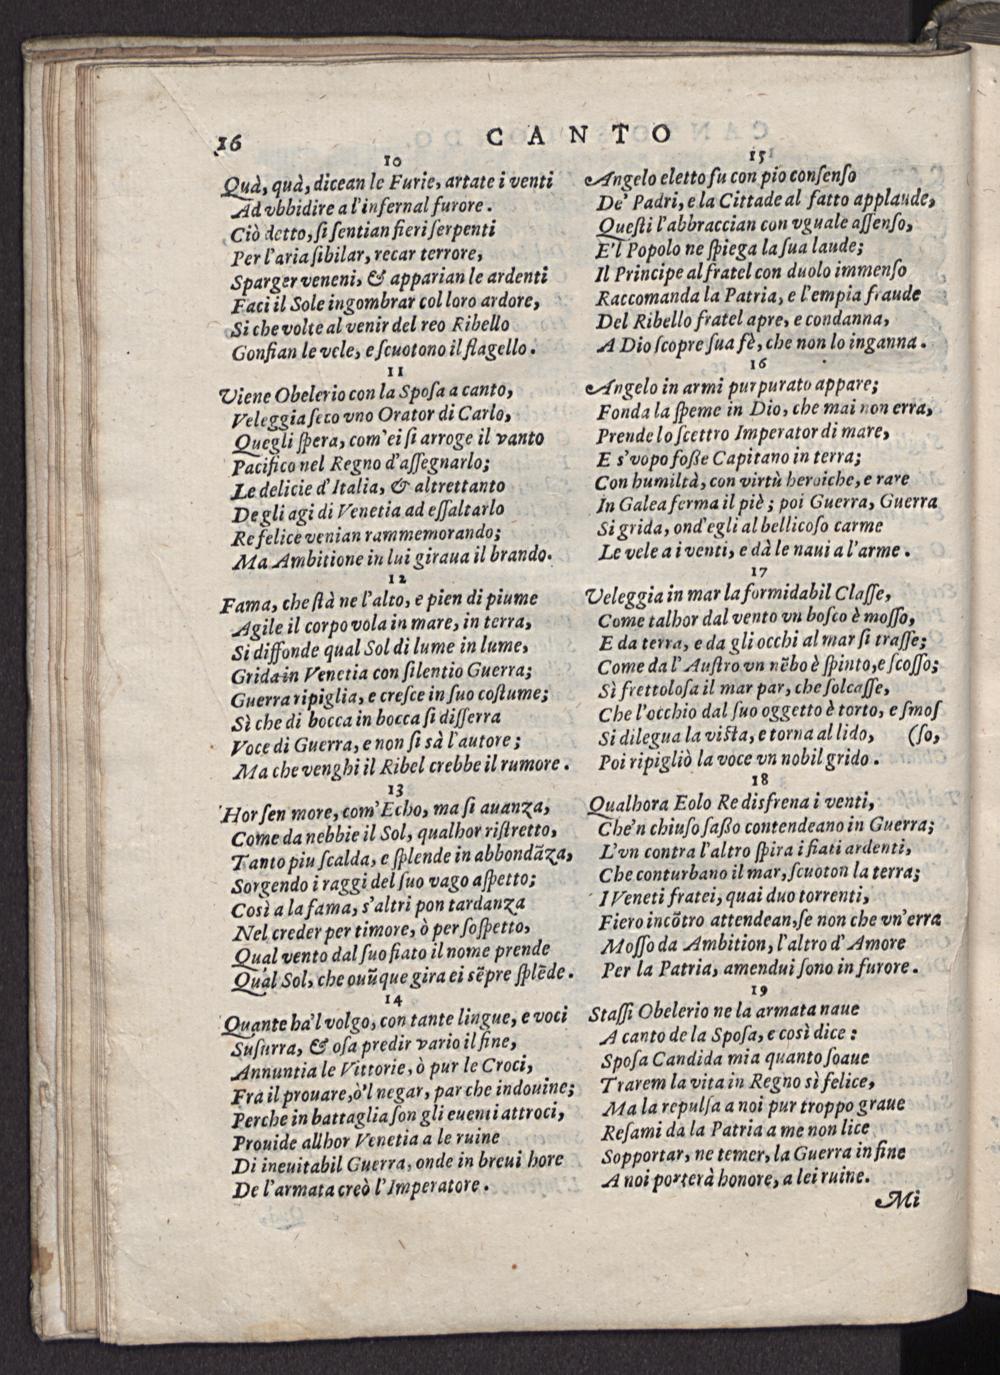 16
CANTO
10
Quà, quà, dicean le Furie, artate i venti
Ad vbbidire a l'infernal furore.
Ciò detto, ſi ſentian fieri ſerpenti
Per l'aria ſibilar, recar terrore,
Sparger veneni, & apparian le ardenti
Faci il Sole ingombrar col loro ardore,
Si che volte al venir del reo Ribello
Gonfian le vele, e ſcuotono il flagello.
11
Viene Obelerio con la Spoſa a canto,
Veleggia ſeco vno Orator di Carlo,
Quegli ſpera, com'ei ſi arroge il vanto
Pacifico nel Regno d'aſſegnarlo;
Le delicie d'Italia, & altrettanto
De gli agi di Venetia ad eſſaltarlo
Re felice venian rammemorando;
Ma Ambitione in lui giraua il brando.
12
Fama, che ſtà ne l'alto, e pien di piume
Agile il corpo vola in mare, in terra,
Si diffonde qual Sol di lume in lume,
Grida in Venetia con ſilentio Guerra;
Guerra ripiglia, e creſce in ſuo coſtume;
Sì che di bocca in bocca ſi diſſerra
Voce di Guerra, e non ſi sà l'autore;
Ma che venghi il Ribel crebbe il rumore.
13
Hor ſen more, com'Echo, ma ſi auanza,
Come da nebbie il Sol, qualhor riſtretto,
Tanto piu ſcalda, e ſplende in abbondãza,
Sorgendo i raggi del ſuo vago aſpetto;
Così a la fama, s'altri pon tardanza
Nel creder per timore, ò per ſoſpetto,
Qual vento dal ſuo fiato il nome prende
Qual Sol, che ouũque gira ei sẽpre ſplẽde.
14
Quante ha'l volgo, con tante lingue, e voci
Suſurra, & oſa predir vario il fine,
Annuntia le Vittorie, ò pur le Croci,
Fra il prouare, ò'l negar, par che indouine;
Perche in battaglia ſon gli euenti attroci,
Prouide allhor Venetia a le ruine
Di ineuitabil Guerra, onde in breui hore
De l'armata creò l'Imperatore.
15
Angelo eletto fu con pio conſenſo
De' Padri, e la Cittade al fatto applaude,
Queſti l'abbraccian con vguale aſſenſo,
E'l Popolo ne ſpiega la ſua laude;
Il Principe al fratel con duolo immenſo
Raccomanda la Patria, e l'empia fraude
Del Ribello fratel apre, e condanna,
A Dio ſcopre ſua fè, che non lo inganna.
16
Angelo in armi purpurato appare;
Fonda la ſpeme in Dio, che mai non erra,
Prende lo ſcettro Imperator di mare,
E s'vopo foſſe Capitano in terra;
Con humiltà, con virtù heroiche, e rare
In Galea ferma il piè; poi Guerra, Guerra
Si grida, ond'egli al bellicoſo carme
Le vele a i venti, e dà le naui a l'arme.
17
Veleggia in mar la formidabil Claſſe,
Come talhor dal vento vn boſco è moſſo,
E da terra, e da gli occhi al mar ſi traſſe;
Come da l'Auſtro vn nẽbo è ſpinto, e ſcoſſo;
Sì frettoloſa il mar par, che ſolcaſſe,
Che l'occhio dal ſuo oggetto è torto, e ſmoſ
Si dilegua la viſta, e torna al lido, (ſo,
Poi ripigliò la voce vn nobil grido.
18
Qualhora Eolo Re disfrena i venti,
Che'n chiuſo ſaſſo contendeano in Guerra;
L'vn contra l'altro ſpira i fiati ardenti,
Che conturbano il mar, ſcuoton la terra;
I Veneti fratei, quai duo torrenti,
Fiero incõtro attendean, ſe non che vn'erra
Moſſo da Ambition, l'altro d'Amore
Per la Patria, amendui ſono in furore.
19
Staſſi Obelerio ne la armata naue
A canto de la Spoſa, e così dice:
Spoſa Candida mia quanto ſoaue
Trarem la vita in Regno sì felice,
Ma la repulſa a noi pur troppo graue
Reſami da la Patria a me non lice
Sopportar, ne temer, la Guerra in fine
A noi porterà honore, a lei ruine.
Mi